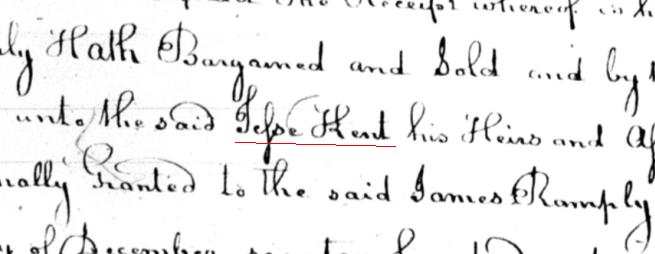 the Receipt whereof is h
ly Hath Bargained and Sold and by t
unto the said Jesse Kent his Heirs and As
nally Granted to the said James Ramply
y of December